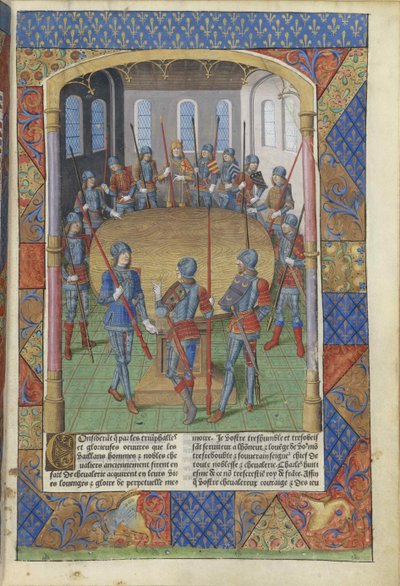 Consideré q̃ par les triũphalles
et glorieuses oeuvres que les
vaillans hommes & nobles che
ualiers anciennement firent en
fait de chevalerie acquirent en leurs vi
es louenges & gloire de perpetuelle me
moire. Je vostre treshumble et tresobeis
sãt seruiteur a lhõneur & louẽge de vo
tresredoubte & souuerain seignẽ chief de
toute noblesse & chevalerie Charles huit
iesme de ce nõ treschrestiẽ roy de frãce. Affin
q̃ vostre chevalereux courage & des ieu